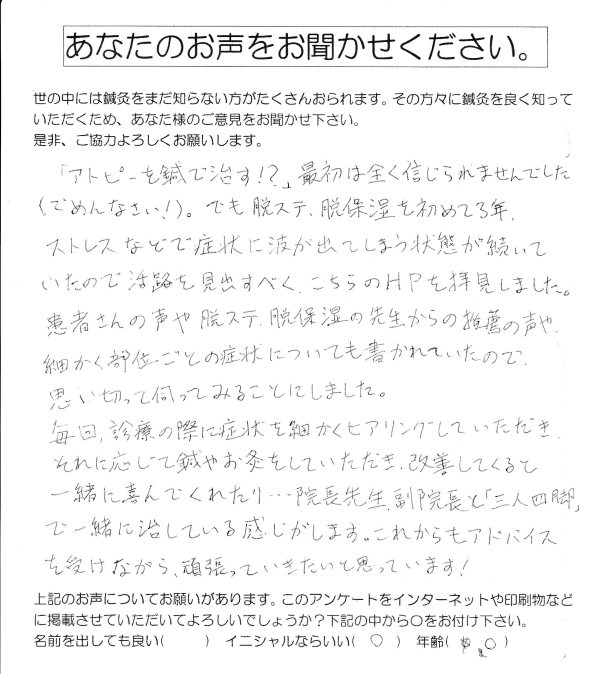 あなたのお声をお聞かせください。
世の中には鍼灸をまだ知らない方がたくさんおられます。その方々に鍼灸を良く知って
いただくため、あなた様のご意見をお聞かせ下さい。
是非、ご協力よろしくお願いします。
「アトピーを鍼で治す!?」最初は全く信じられませんでした
(ごめんなさい!)。でも脱ステ、脱保湿を初めて3年、
ストレスなどで症状に波が出てしまう状態が続いて
いたので活路を見出すべく、こちらのHPを拝見しました。
患者さんの声や脱ステ、脱保湿の先生からの推薦の声や、
細かく部位ごとの症状についても書かれていたので、
思い切って伺ってみることにしました。
毎回、診療の際に症状を細かくヒアリングしていただき、
それに応じて鍼やお灸をしていただき、改善してくると
一緒に喜んでくれたり…院長先生、副院長と「三人四脚」
で一緒に治している感じがします。これからもアドバイス
を受けながら、頑張っていきたいと思っています!
上記のお声についてお願いがあります。このアンケートをインターネットや印刷物など
に掲載させていただいてよろしいでしょうか?下記の中から〇をお付け下さい。
名前を出しても良い( ) イニシャルならいい( 〇 ) 年齢( 〇 )